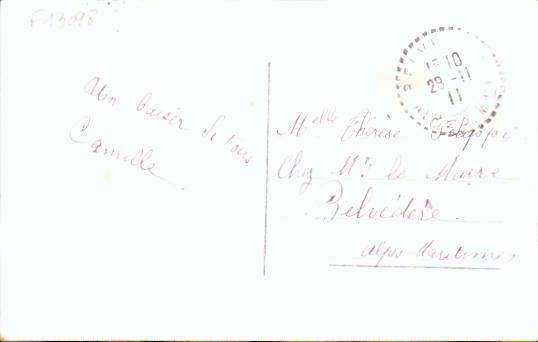 F13098
Un baiser de tous
Camille
15 10
28 - 11
11
Melle Thérèse
Chez Mr le Maire
Belvédère
Alpes Maritimes